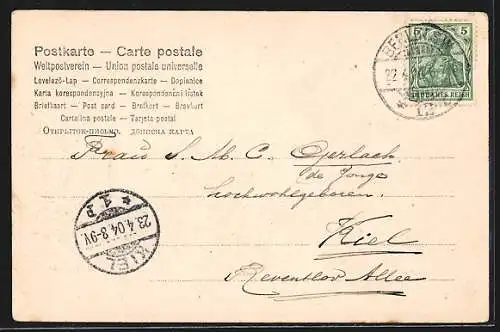 Postkarte — Carte postale
Weltpostverein — Union postale universelle
Levelező-Lap — Correspondenzkarte — Dopisnice
Karta korespondencyjna — Korespondenční lístek
Briefkaart — Post card — Brefkort — Brevkort
Cartolina postale — Tarjeta postal
Открытое-письмо. Дописна карта
5 5
DEUTSCHES REICH
22.4
Frau S. M. C. Gerlach
de Jonge
hochwohlgeboren.
Kiel
Reventlov Allee
KIEL
23.4.04.8-9V
* 1 P